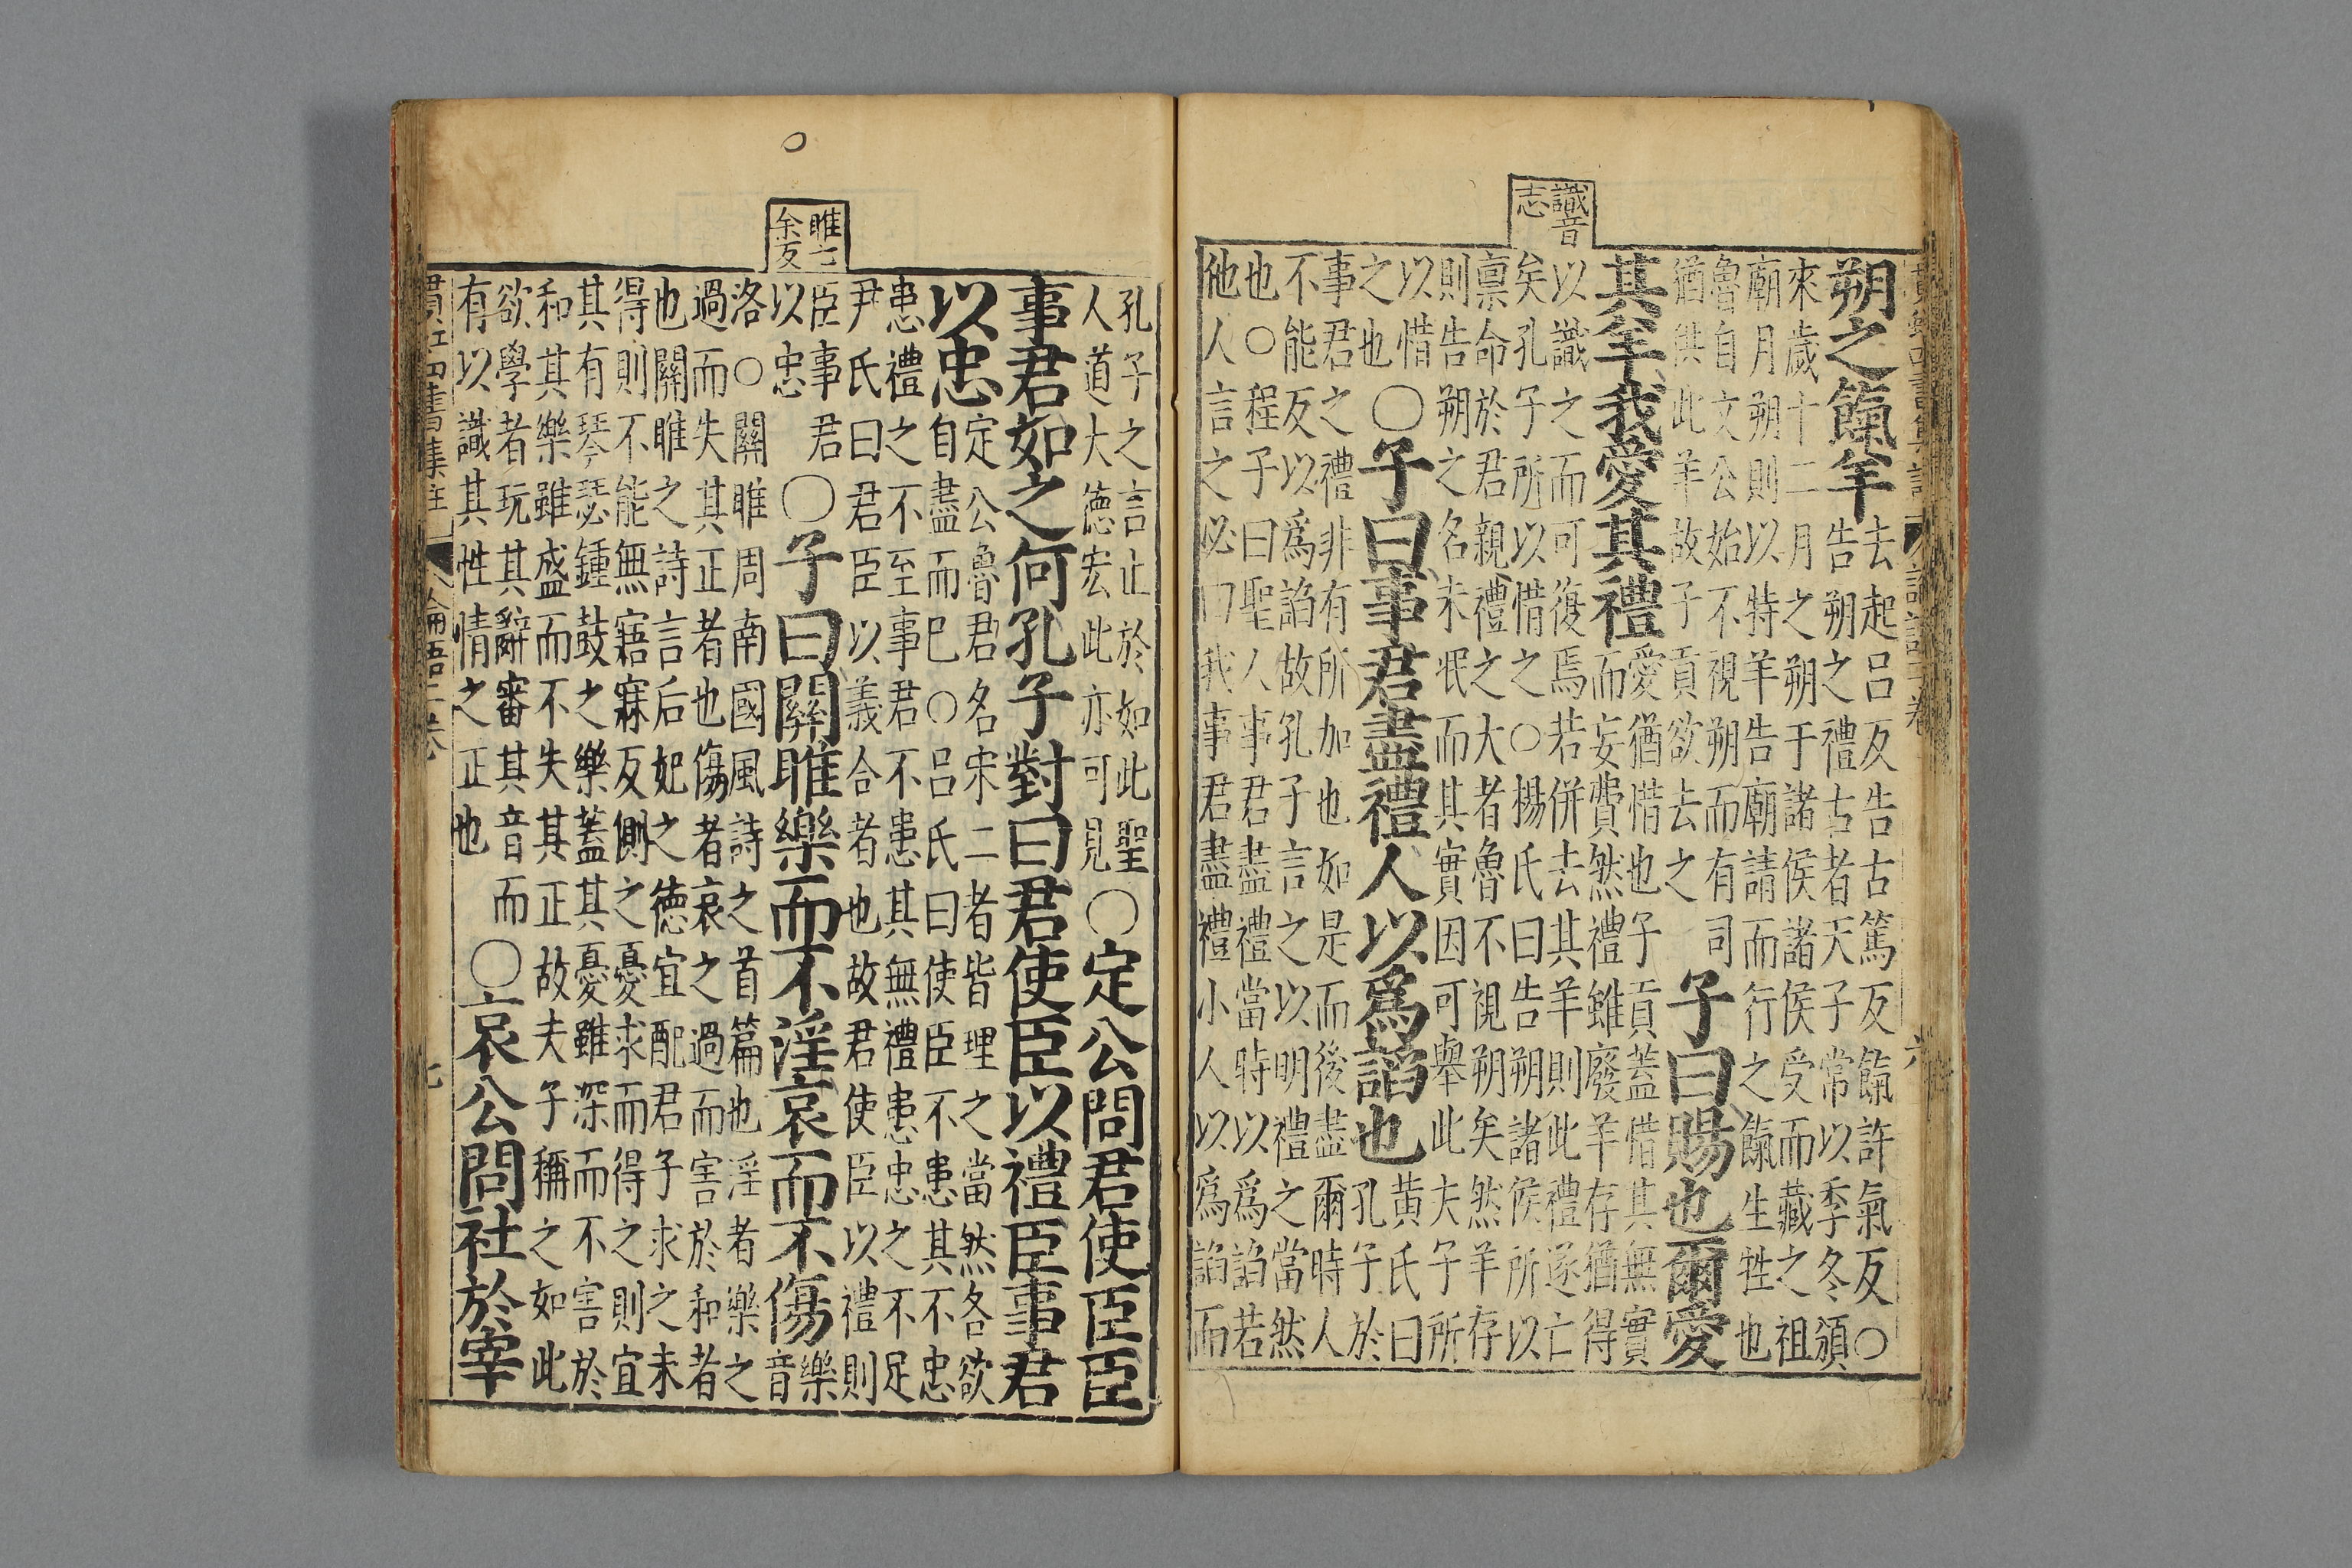 識音
志
朔之餼羊去起呂反告古篤反餼許氣反○
告朔之禮古者天子常以季冬頒
來歲十二月之朔于諸侯諸侯受而藏之祖
廟月朔則以特羊告廟請而行之餼生牲也
魯自文公始不視朔而有司
猶供此羊故子貢欲去之
子曰賜也爾愛
其羊我愛其禮愛猶惜也子貢蓋惜其無實
而妄費然禮雖廢羊存猶得
以識之而可復焉若併去其羊則此禮遂亡
矣孔子所以惜之○楊氏曰告朔諸侯所以
稟命於君親禮之大者魯不視朔矣然羊存
則告朔之名未泯而其實因可舉此夫子所
以惜
之也
○子曰事君盡禮人以爲諂也黃氏曰
孔子於
事君之禮非有所加也如是而後盡爾時人
不能反以爲諂故孔子言之以明禮之當然
也○程子曰聖人事君盡禮當時以爲諂若
他人言之必曰我事君盡禮小人以爲諂而
六
睢七
余反
孔子之言止於如此聖
人道大德宏此亦可見
○定公問君使臣臣
事君如之何孔子對曰君使臣以禮臣事君
以忠定公魯君名宋二者皆理之當然各欲
自盡而巳○呂氏曰使臣不患其不忠
患禮之不至事君不患其無禮患忠之不足
尹氏曰君臣以義合者也故君使臣以禮則
臣事君
以忠
○子曰關睢樂而不淫哀而不傷樂
音
洛○關睢周南國風詩之首篇也淫者樂之
過而失其正者也傷者哀之過而害於和者
也關睢之詩言后妃之德宜配君子求之未
得則不能無寤寐反側之憂求而得之則宜
其有琴瑟鍾鼓之樂蓋其憂雖深而不害於
和其樂雖盛而不失其正故夫子稱之如此
欲學者玩其辭審其音而
有以識其性情之正也
○哀公問社於宰
四書集註
論語二卷
七